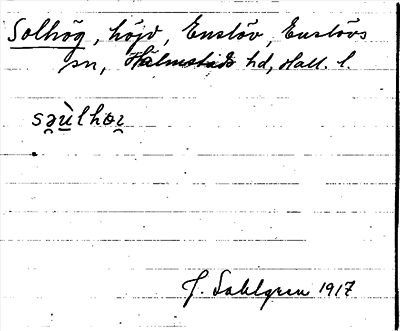 Solhög, höjd, Enslöv, Enslövs
sn, Halmstads hd, Hall. l.
sə̯ùlhœɪ̯
J. Sahlgren 1917